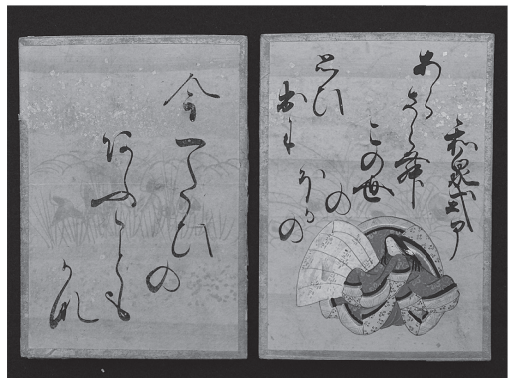 和泉式部
あら
さら舞
この世
の
ほかの
思ひ
出に
今
一たひの
あふことも
かな